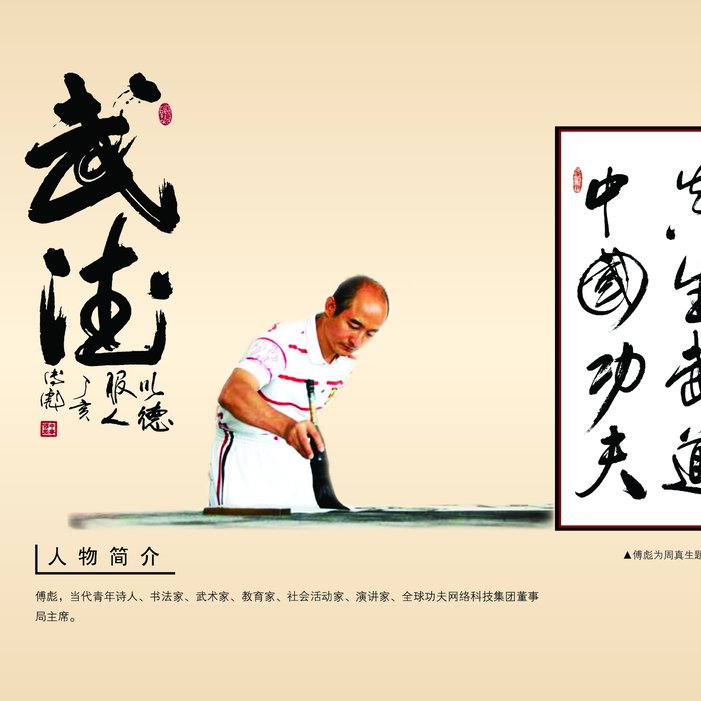 武德
以德
服人
丁亥
傅彪
中國功夫
人物简介
傅彪，当代青年诗人、书法家、武术家、教育家、社会活动家、演讲家、全球功夫网络科技集团董事
局主席。
▲傅彪为周真生题